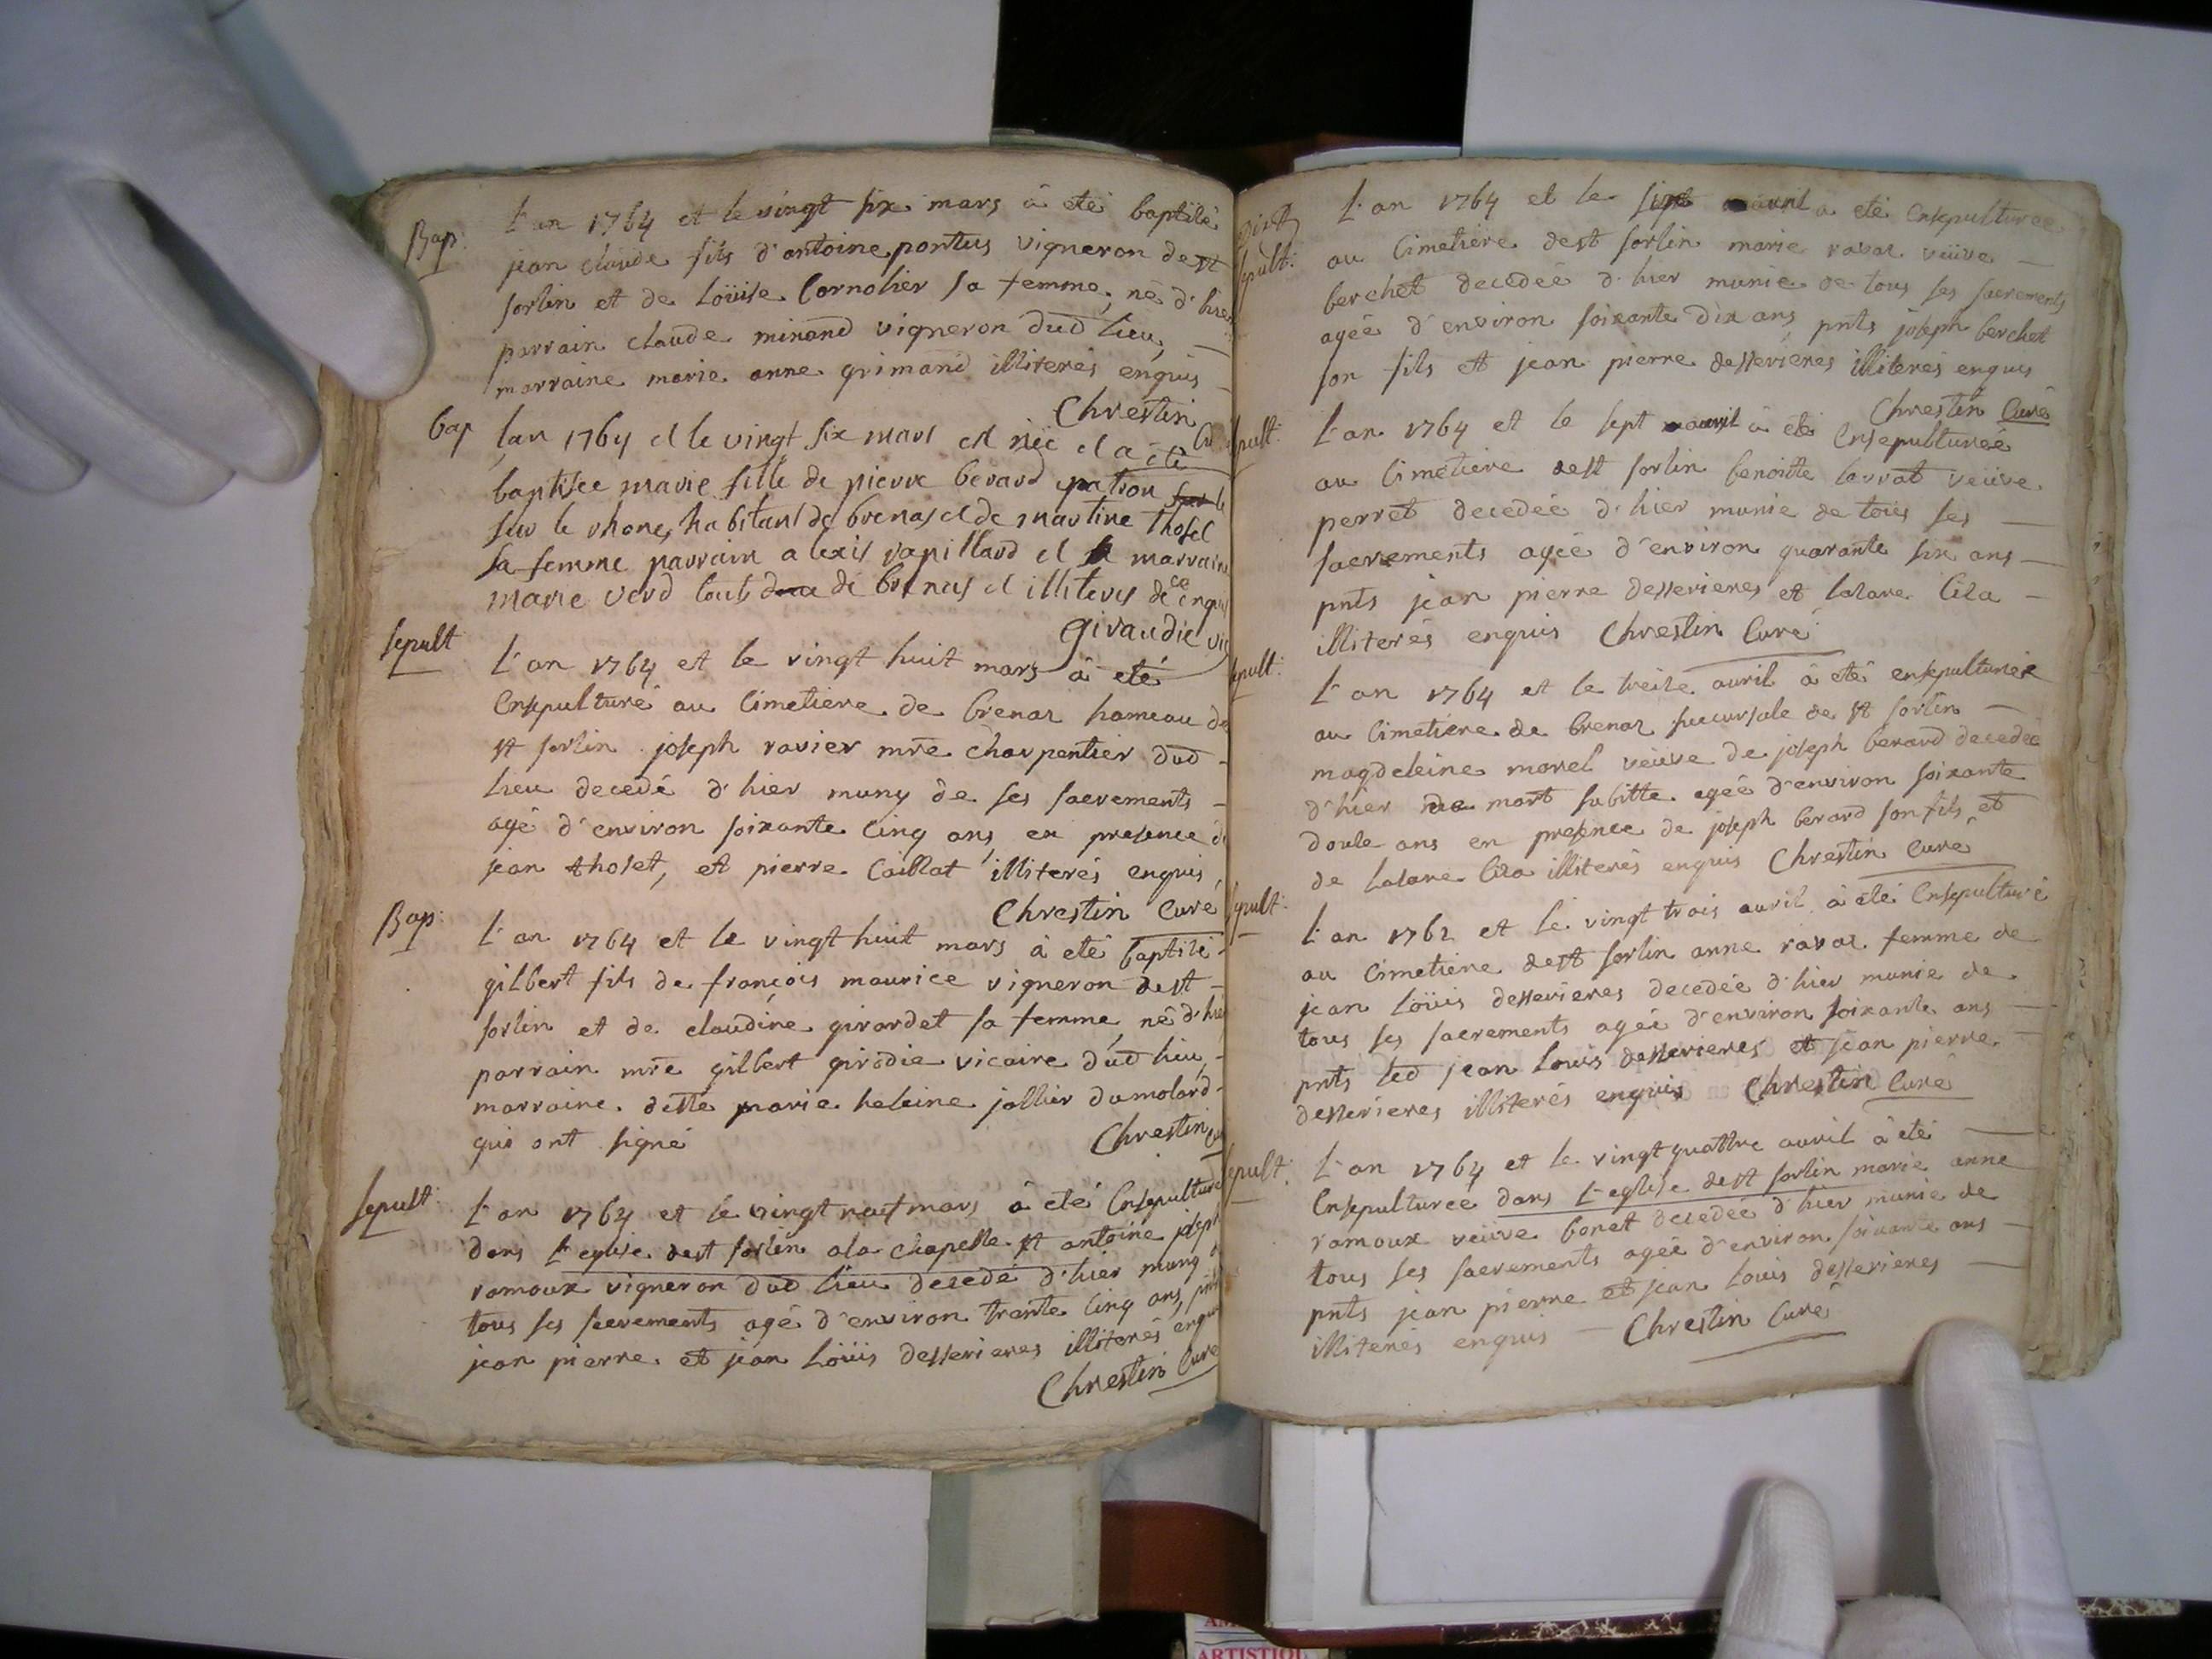 Bap. L'an 1764 et le vingt six mars à eté baptisé
jean claude fils d'antoine pontus vigneron de st
sorlin et de Loüise Cornolier sa femme, né d'hier
parrain claude minand vigneron dud lieu,
marraine marie anne grimand illiterés enquis
Chrestin Cu
bap lan 1764 et le vingt six mars est née et a été
baptisée marie fille de pierre berard patron sur le
sur le rhone, habitant de brenas et de martine thoset
sa femme parrain alexis vapillard et la marraine
marie verd touts de brenas et illiterés de ce enquis
Giraudie vic
sepult L'an 1764 et le vingt huit mars à eté
Ensepulturé au Cimetiere de brenaz hameau de
st sorlin joseph ravier mre charpentier dud
lieu decedé d'hier muny de ses sacrements
agé d'environ soixante Cinq ans, en presence de
jean thoset, et pierre Caillat illiterés enquis,
Chrestin Curé
Bap: L'an 1764 et le vingt huit mars à eté baptisé
gilbert fils de françois maurice vigneron de st
sorlin et de claudine girardet sa femme, né d'hier
parrain mre gilbert girodie vicaire dud lieu,
marraine. delle marie heleine jollier dumolard
qui ont signé Chrestin Cu
sepult: L'an 1764 et le vingt neuf mars à eté Ensepulturé
dans L'eglise de st sorlin a la Chapelle st antoine joseph
ramoux vigneron dud lieu decedé d'hier muny de
tous ses sacrements agé d'environ trante Cinq ans, pnts
jean pierre et jean Loüis desserieres illiterés enquis
Chrestin Curé
sepult: L'an 1764 et le sixt avril à eté Ensepulturée
au Cimetiere de st sorlin marie ravaz veüve
berchet decedée d'hier munie de tous ses sacrements
agée d'environ soixante dix ans, pnts joseph berchet
son fils et jean pierre desserieres illiterés enquis
Chrestin Curé
sepult: L'an 1764 et le sept avril à eté Ensepulturée
au Cimetiere de st sorlin benoitte larrat veüve
perret decedée d'hier munie de tous ses
sacrements agée d'environ quarante six ans
pnts jean pierre desserieres et lazare Ciza
illiterés enquis Chrestin Curé
sepult: L'an 1764 et le treize avril à eté ensepulturée
au Cimetiere de brenaz succursale de st sorlin
magdeleine morel veüve de joseph berard decedée
d'hier de mort subitte agée d'environ soixante
douze ans en presence de joseph berard son fils, et
de lazare Ciza illiterés enquis Chrestin Curé
sepult: L'an 1762 et le vingt trois avril à eté Ensepulturé
au Cimetiere de st sorlin anne ravaz femme de
jean Loüis desserieres decedée d'hier munie de
tous ses sacrements agée d'environ soixante ans
pnts led jean Louis desserieres et jean pierre
desserieres illiterés enquis Chrestin Curé
sepult: L'an 1764 et le vingt quattre avril à eté
Ensepulturee dans L'eglise de st sorlin marie anne
ramoux veüve bonet decedée d'hier munie de
tous ses sacrements agée d'environ soixante ans
pnts jean pierre et jean Louis desserieres
illiterés enquis Chrestin Curé
ARTISTIQL